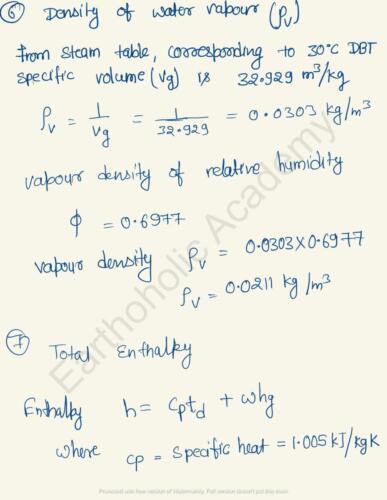 ⑥ Density of water vapour (ρv)
from steam table, corresponding to 30°C DBT
specific volume (vg) is 32.929 m³/kg
ρv = 1/vg = 1/32.929 = 0.0303 kg/m³
vapour density of relative humidity
ϕ = 0.6977
vapour density ρv = 0.0303 X 0.6977
ρv = 0.0211 kg/m³
⑦ Total Enthalpy
Enthalpy h = cptd + whg
where cp = specific heat = 1.005 kJ/kgK
Earthoholic Academy
Protected with free version of Watermarkly. Full version doesn't put this mark.